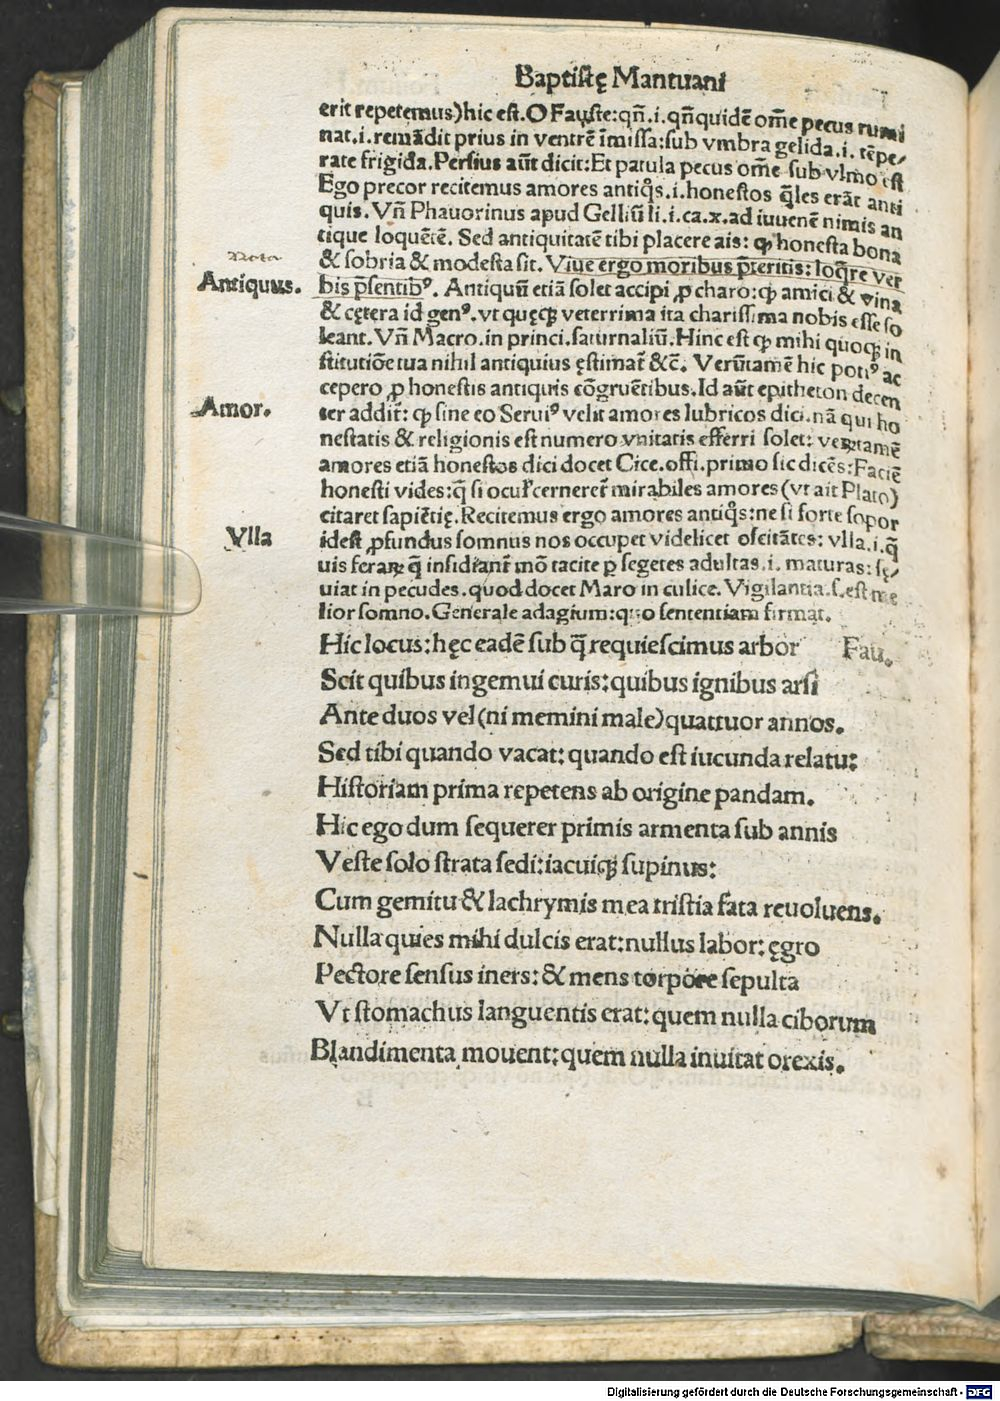 Baptistę Mantuani
erit repetemus)hic est.O Fauste:qñ.i.qñquidē oīme pecus rumi
nat.i.remādit prius in ventrē īmissa:sub vmbra gelida.i. tēpe/
rate frigida.Persius aūt dicit:Et patula pecus oīme sub vlmo est
Ego precor recitemus amores antiq̊s.i.honestos q̄les erāt anti
quis. Vñ Phauorinus apud Gelliū li.i.ca.x.ad iuuenē nimis an
tique loquētē. Sed antiquitatē tibi placere ais: ꝙ honesta bona
Nota
& sobria & modesta sit. Viue ergo moribus p̄teritis: loq̄re ver
Antiquus.
bis p̄sentibꝰ. Antiquū etiā solet accipi ꝓ charo:ꝙ amici & vina
& cętera id genꝰ.vt quęcꝗ veterrima ita charissima nobis esse so
leant. Vñ Macro.in princi.saturnaliū. Hinc est ꝙ mihi quocꝗ in
stitutiōe tua nihil antiquius ęstimat̄ &c̄. Verūtamē hic potiꝰ ac
cepero ꝓ honestis antiquis cōgruētibus.Id aūt epitheton decen
Amor.
ter addit̄: ꝙ sine eo Seruiꝰ velit amores lubricos dici.nā qui ho
nestatis & religionis est numero vnitatis efferri solet: veꝝtamē
amores etiā honestos dici docet Cice.offi.primo sic dicēs:Faciē
honesti vides:q̄ si oculꝭ cerneret̄ mirabiles amores (vt ait Plato)
citaret sapiētię.Recitemus ergo amores antiq̊s:ne si forte sopor
Vlla
idest ꝓfundus somnus nos occupet videlicet oscitātes: vlla.i.q̄
uis feraꝝ q̄ insidiant̄ mō tacite ꝑ segetes adultas.i. maturas: sę/
uiat in pecudes.quod docet Maro in culice. Vigilantia.s.est me
lior somno.Generale adagium:quo sententiam firmat.
Hic locus:hęc eadē sub q̄ requiescimus arbor Fau.
Scit quibus ingemui curis:quibus ignibus arsi
Ante duos vel(ni memini male)quattuor annos.
Sed tibi quando vacat: quando est iucunda relatu:
Historiam prima repetens ab origine pandam.
Hic ego dum sequerer primis armenta sub annis
Veste solo strata sedi:iacuicꝗ supinus:
Cum gemitu & lachrymis mea tristia fata reuoluens.
Nulla quies mihi dulcis erat:nullus labor: ęgro
Pectore sensus iners: & mens torpore sepulta
Vt stomachus languentis erat: quem nulla ciborum
Blandimenta mouent:quem nulla inuitat orexis.
Digitalisierung gefördert durch die Deutsche Forschungsgemeinschaft - DFG